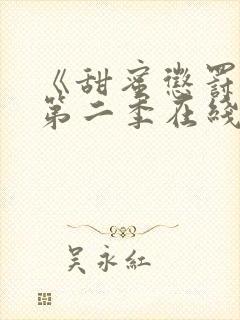 《甜蜜惩罚
第二季在线
吴永红